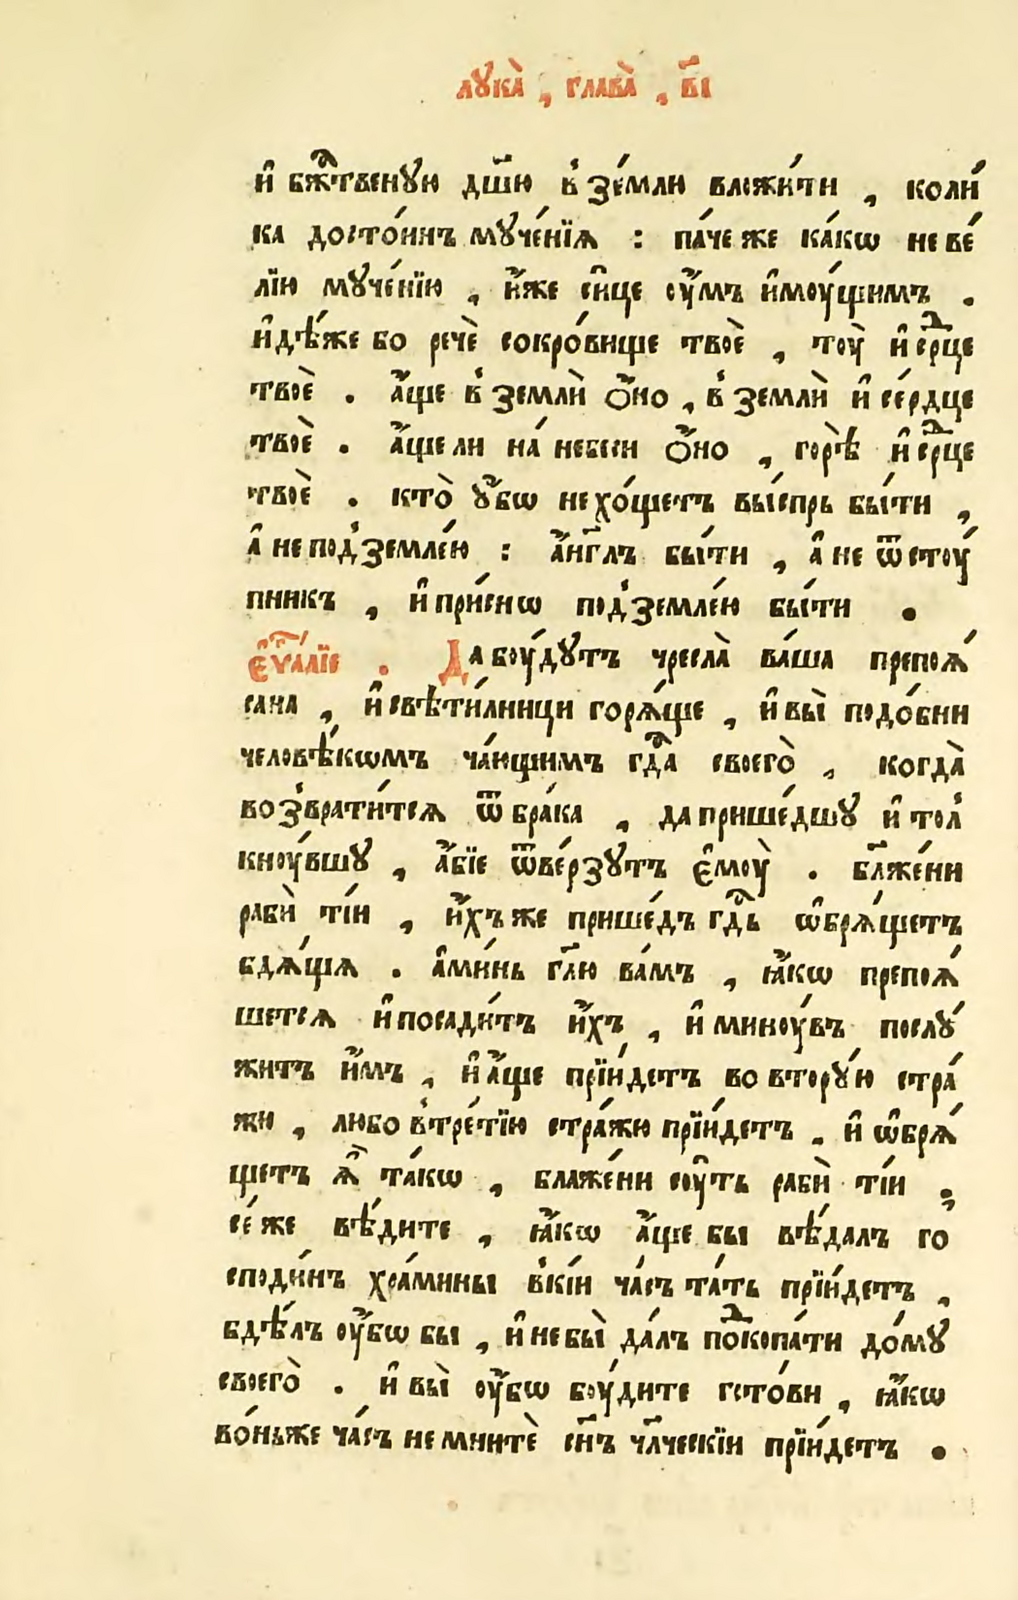 лꙋка̀ , глава̀ , в҃і
и҆ бжⷭ҇твенꙋю дш҃ю в̾ зе́мли вложи́ти , коли́
ка досто́инъ мꙋче́нїѧ : па́че же ка́кѡ не ве́
лїю мꙋче́нїю , и҆́же си́це оу҆́мъ и҆мꙋ́щимъ .
и҆дѣ́же бо речѐ сокро́вище твоѐ , тоу̀ и҆ срⷣце
твоѐ . а҆́ще в̾ землѝ ѻ҆́но , в̾ землѝ и҆ се́рдце
твоѐ . а҆́ще ли на́ небеси ѻ҆́но , горѣ̀ и҆ срⷣце
твоѐ . кто̀ ꙋ҆́бѡ не хо́щетъ вы́спрь бы́ти ,
а҆ не под̾земле́ю : а҆́нгл҃ъ бы́ти , а҆ не ѿстоу́
пникъ , и҆ при́снѡ под̾землею бы́ти .
є҆ѵⷢ҇алїе . Да боу́дꙋтъ чресла̀ ва́ша препоѧ́
сана , и҆ свѣти́лницы горѧ́ще , и҆ вы̀ подо́бни
человѣ́кѡмъ ча́ющимъ гдⷭ҇а своего̀ , когда̀
воз̾врати́тсѧ ѿ бра́ка , да прише́дшꙋ и҆ тол̾
кноу́вшꙋ , а҆́бїе ѿве́рзꙋтъ є҆моу̀ . бл҃же́ни
рабѝ ті́и , и҆́хъ же прише́дъ гдⷭ҇ь ѡ҆брѧ́щетъ
бдѧ́щѧ . а҆ми́нь гл҃ю ва́мъ , ꙗ҆́кѡ препоѧ́
шетсѧ и҆ посади́тъ и҆́хъ , и҆ миноу́въ послꙋ́
житъ и҆́мъ , и҆ а҆́ще прїи́детъ во вторꙋ́ю стра́
жи , любо в̾тре́тїю стра́жю прїи́детъ , и҆ ѡ҆брѧ́
щетъ ѧ҆̀ та́кѡ , блаже́ни соу́ть рабѝ ті́и ,
се́ же вѣ́дите , ꙗ҆́кѡ а҆́ще бы вѣ́далъ го
споди́нъ хра́мины в̾кі́и ча́съ та́ть прїи́детъ ,
бдѣ́лъ оу҆́бѡ бы , и҆ не бы̀ да́лъ поⷣкопа́ти до́мꙋ
своего̀ . и҆ вы̀ оу҆́бѡ боу́дите гото́ви , ꙗ҆́кѡ
во́ньже ча́съ не мнитѐ сн҃ъ чл҃ческїи прїи́детъ .